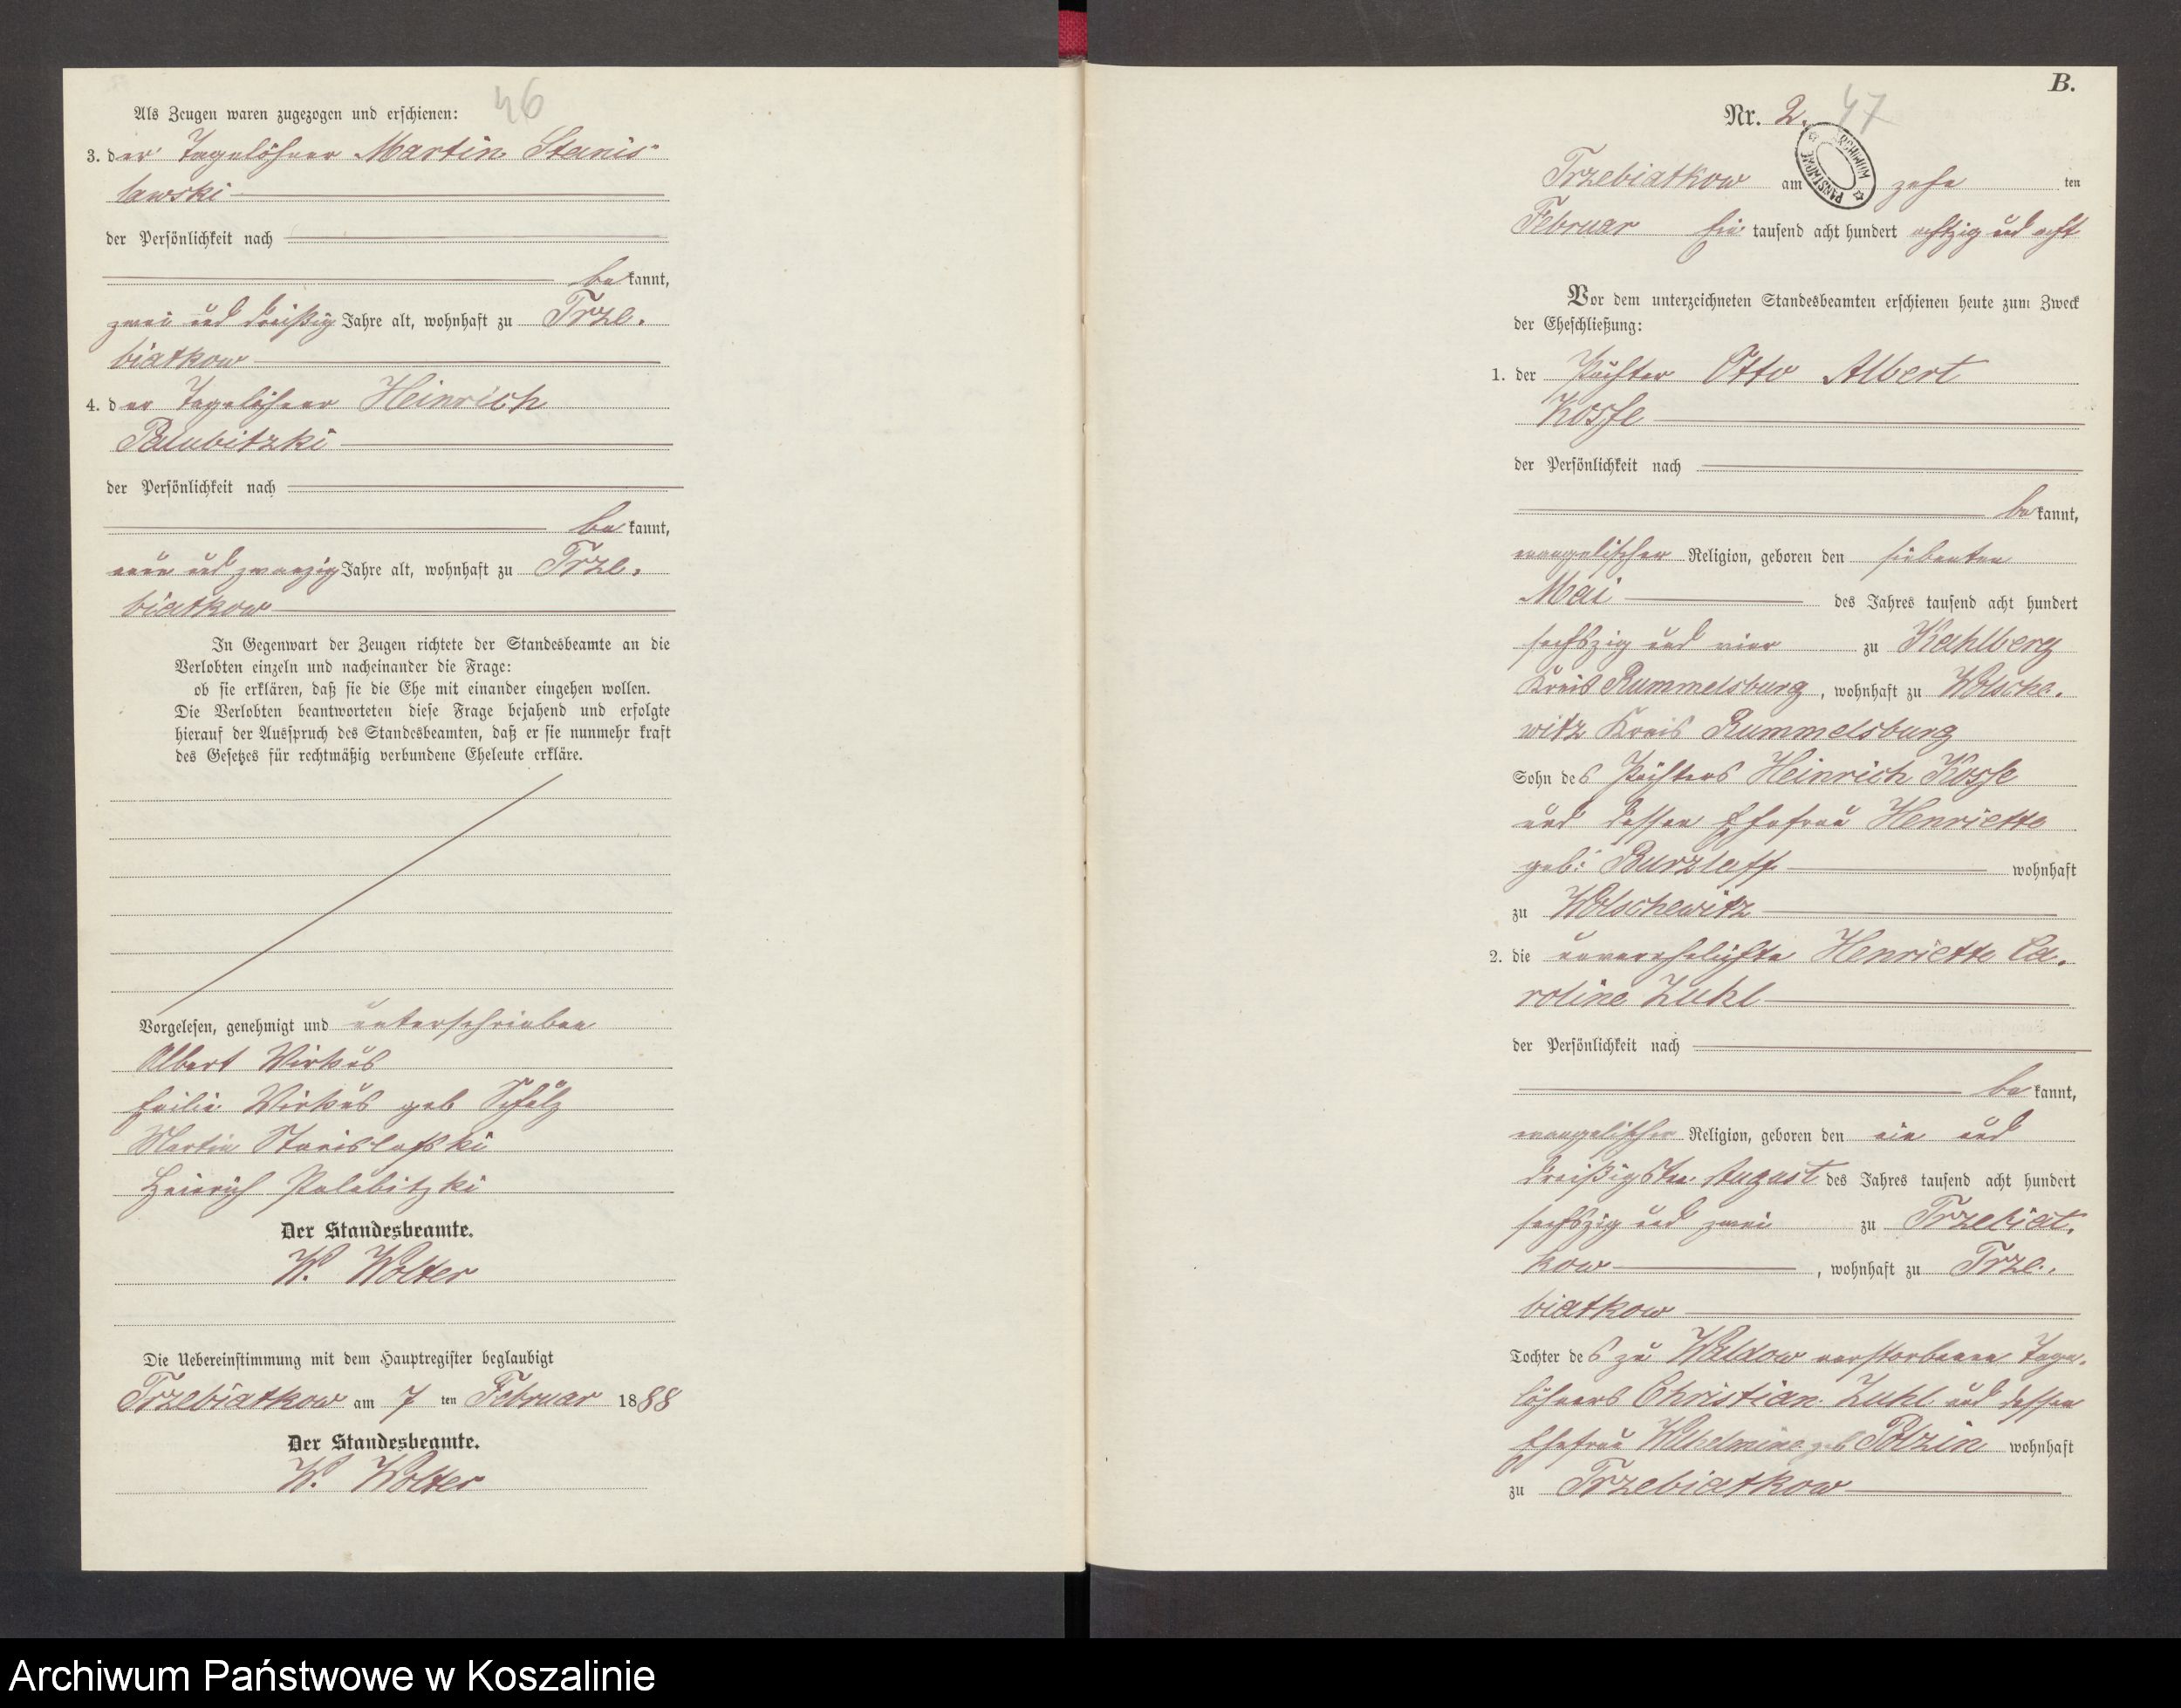 46
Als Zeugen waren zugezogen und erschienen:
3. der Tagelöhner Martin Stanis-
lawski
der Persönlichkeit nach
bekannt,
zwei und dreißig Jahre alt, wohnhaft zu Trze-
biatkow
4. der Tagelöhner Heinrich
Palubitzki
der Persönlichkeit nach
bekannt,
neun und zwanzig Jahre alt, wohnhaft zu Trze-
biatkow
In Gegenwart der Zeugen richtete der Standesbeamte an die
Verlobten einzeln und nacheinander die Frage:
ob sie erklären, daß sie die Ehe mit einander eingehen wollen.
Die Verlobten beantworteten diese Frage bejahend und erfolgte
hierauf der Ausspruch des Standesbeamten, daß er sie nunmehr kraft
des Gesetzes für rechtmäßig verbundene Eheleute erkläre.
Vorgelesen, genehmigt und unterschrieben
Albert Wirkus
Wirkus geb Schulz
Martin Stanislafski
Heinrich Palubitzki
Der Standesbeamte.
W. Wolter
Die Uebereinstimmung mit dem Hauptregister beglaubigt
Trzebiatkow am 7 ten Februar 1888
Der Standesbeamte.
W. Wolter
B.
Nr. 2. 47
ARCHIWUM PAŃSTWOWE
Trzebiatkow am zehn ten
Februar Ein tausend acht hundert achtzig und acht
Vor dem unterzeichneten Standesbeamten erschienen heute zum Zweck
der Eheschließung:
1. der Pächter Otto Albert
Kosse
der Persönlichkeit nach
bekannt,
evangelischer Religion, geboren den siebenten
Mai des Jahres tausend acht hundert
sechszig und vier zu Kahlberg
Kreis Rummelsburg, wohnhaft zu Wolsche-
witz Kreis Rummelsburg
Sohn des Pächters Heinrich Kosse
und dessen Ehefrau Henriette
geb: Burzlaff wohnhaft
zu Wolschewitz
2. die unverehelichte Henriette Ca-
roline Zuhl
der Persönlichkeit nach
bekannt,
evangelischer Religion, geboren den ein und
dreißigsten August des Jahres tausend acht hundert
sechszig und zwei zu Trzebiat-
kow, wohnhaft zu Trze-
biatkow
Tochter des zu Waldow verstorbenen Tage-
löhners Christian Zuhl und dessen
Ehefrau Wilhelmine geb Polzin wohnhaft
zu Trzebiatkow
Archiwum Państwowe w Koszalinie